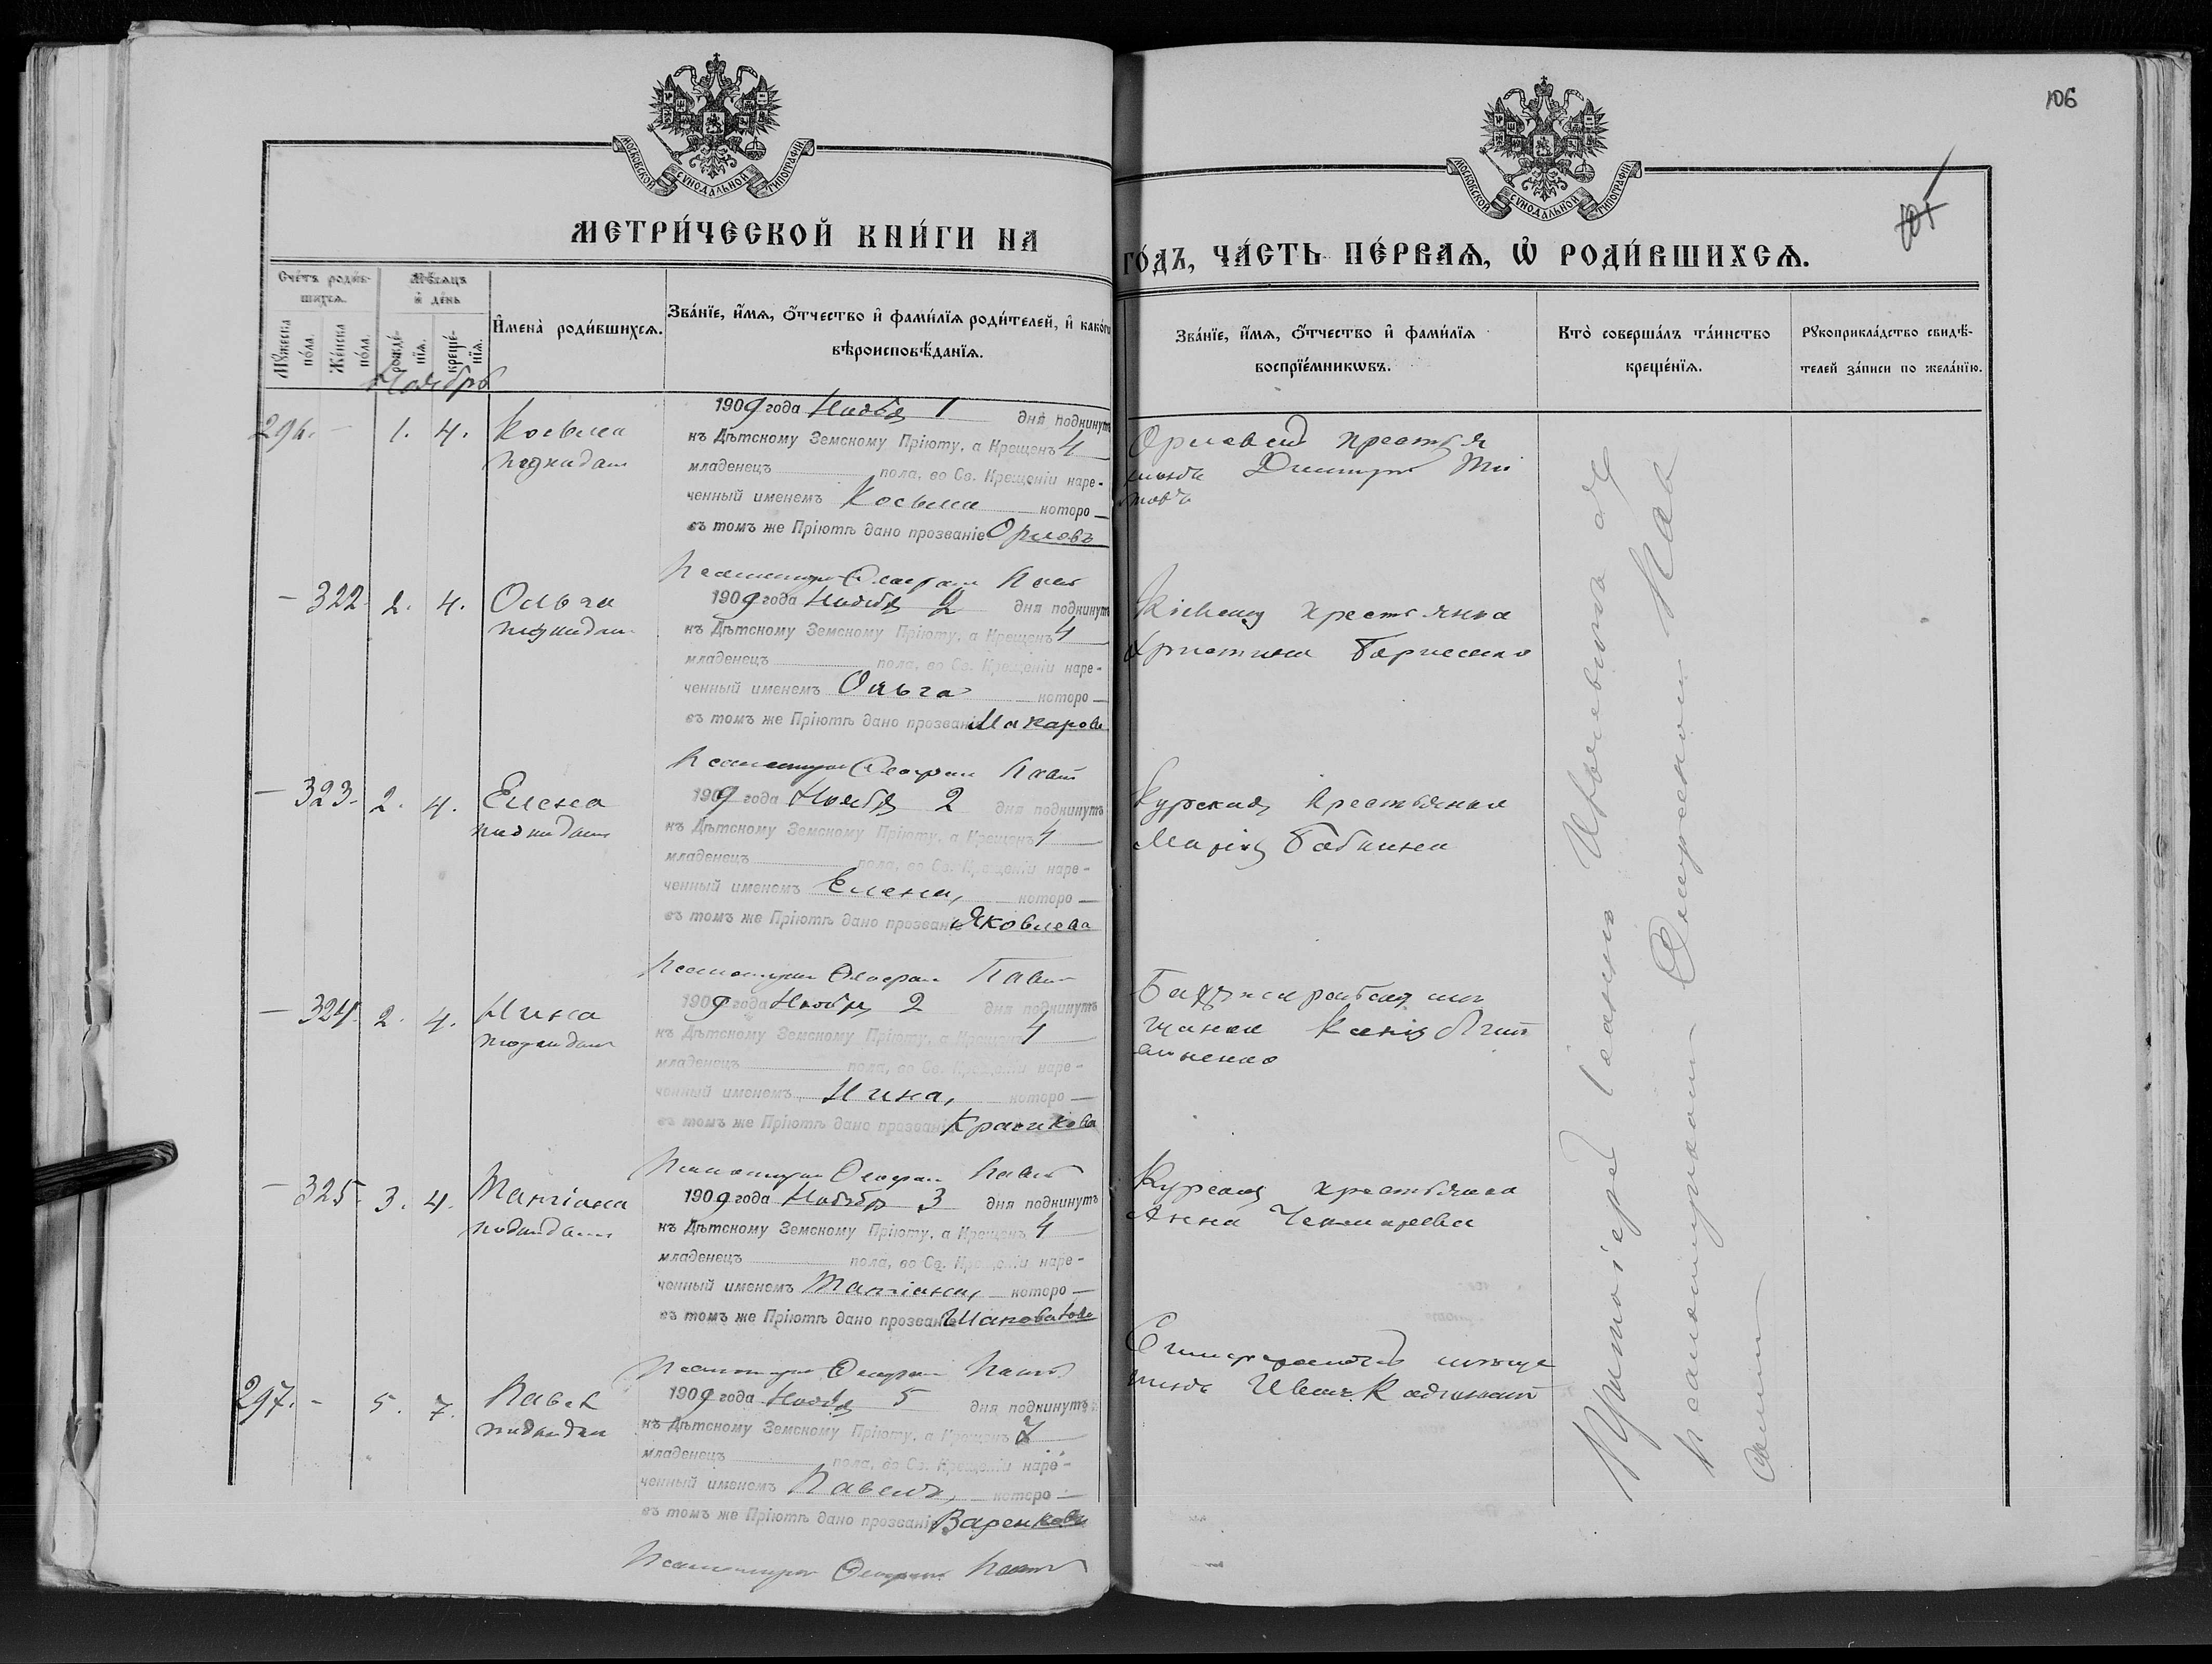 106
105
МОСКОВСКОЙ СѴНОДАЛЬНОЙ ТИПОГРАФІИ
МОСКОВСКОЙ СѴНОДАЛЬНОЙ ТИПОГРАФІИ
МЕТРИ́ЧЕСКОЙ КНИ́ГИ НА
ГО́ДЪ, ЧА́СТЬ ПЕ́РВАѦ, Ѡ РОДИ́ВШИХСѦ.
Сче́тъ роди́в-
шихсѧ.
Мѣ́сѧцъ
и҆ де́нь
Мꙋ́жеска
по́ла.
Же́нска
по́ла.
рожде́-
нїѧ.
креще́-
нїѧ.
И҆мена̀ роди́вшихсѧ.
Зва́нїе, и҆́мѧ, ѻ҆́тчество и҆ фами́лїѧ роди́телей, и҆ како́гѡ
вѣроисповѣ́данїѧ.
Зва́нїе, и҆́мѧ, ѻ҆́тчество и҆ фами́лїѧ
воспрїе́мникѡвъ.
Кто̀ соверша́лъ та́инство
креще́нїѧ.
Рꙋкоприкла́дство свидѣ́-
телей за́писи по жела́нїю.
Ноябрь
296. - 1. 4. Косьма
подкидыш
1909 года Ноября 1 дня подкинутъ
къ Дѣтскому Земскому Пріюту, а Крещенъ 4
младенецъ пола, во Св. Крещеніи наре-
ченный именемъ Косьма которо
въ томъ же Пріютѣ дано прозваніе Орловъ
Орловскій крестья
нинъ Димитрій Ти
товъ
- 322. 2. 4. Ольга
подкидыш
1909 года Ноября 2 дня подкинутъ
къ Дѣтскому Земскому Пріюту, а Крещенъ 4
младенецъ пола, во Св. Крещеніи наре-
ченный именемъ Ольга которо
въ томъ же Пріютѣ дано прозваніе Макарова
Кіевская крестьянка
Христина Борисенко
- 323. 2. 4. Елена
подкидыш
1909 года Ноября 2 дня подкинутъ
къ Дѣтскому Земскому Пріюту, а Крещенъ 4
младенецъ пола, во Св. Крещеніи наре-
ченный именемъ Елена, которо
въ томъ же Пріютѣ дано прозваніе Яковлева
Курская крестьянка
Марія Бабкина
- 324. 2. 4. Нина
подкидыш
1909 года Ноября 2 дня подкинутъ
къ Дѣтскому Земскому Пріюту, а Крещенъ 4
младенецъ пола, во Св. Крещеніи наре-
ченный именемъ Нина, которо
въ томъ же Пріютѣ дано прозваніе Красикова
Бахчисарайская мѣ
щанка
- 325. 3. 4. Татіана
подкидыш
1909 года Ноября 3 дня подкинутъ
къ Дѣтскому Земскому Пріюту, а Крещенъ 4
младенецъ пола, во Св. Крещеніи наре-
ченный именемъ Татіана, которо
въ томъ же Пріютѣ дано прозваніе Шаповалова
Курская крестьянка
Анна
297. - 5. 7. Павел
подкидыш
1909 года Ноября 5 дня подкинутъ
къ Дѣтскому Земскому Пріюту, а Крещенъ 7
младенецъ пола, во Св. Крещеніи наре-
ченный именемъ Павелъ, которо
въ томъ же Пріютѣ дано прозваніе Варенковъ
Симферопольскій мѣща
нинъ Иванъ
Протоіерей Іоаннъ
Псаломщикомъ